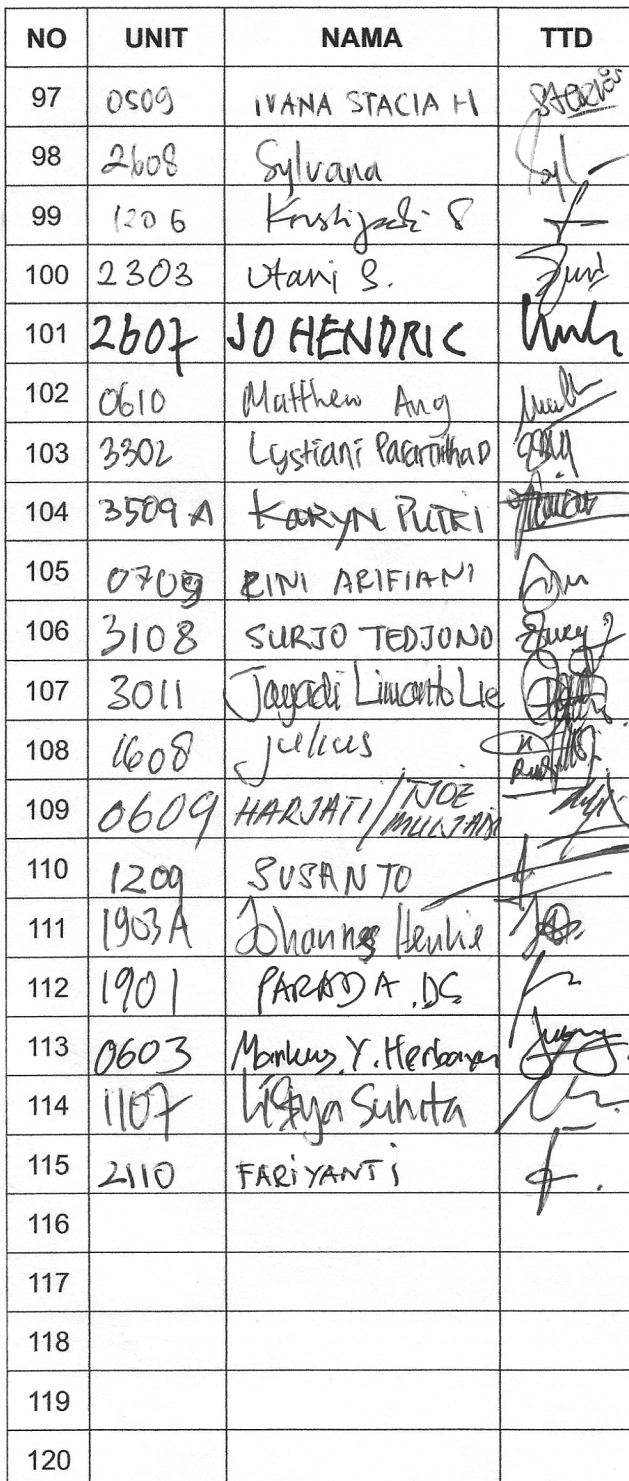 NO UNIT NAMA TTD
97 0509 IVANA STACIA H
98 2608 Sylvana
99 1206
100 2303 Utari S.
101 2607 JO HENDRIC
102 0610 Matthew Ang
103 3302 Lystiani
104 3509 A KARYN PUTRI
105 0709 RINI ARIFIANI
106 3108 SURJO TEDJONO
107 3011 Jayadi Limanto Lie
108 1608 Julius
109 0609 HARJATI / TJOE
110 1209 SUSANTO
111 1903 A Johannes Henkie
112 1901 PARADA .DS
113 0603 Markus. Y.
114 1107 Suhita
115 2110 FARIYANTI
116
117
118
119
120